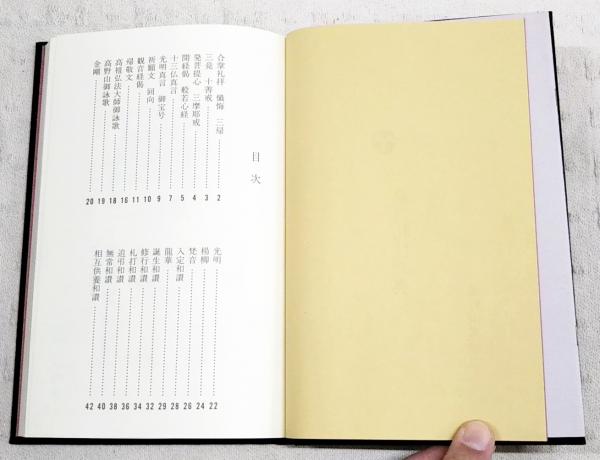 目次
合掌礼拝 懺悔 三帰……2
三竟 十善戒……3
発菩提心 三摩耶戒……4
開経偈 般若心経……5
十三仏真言……7
光明真言 御宝号……9
祈願文 回向……10
観音経偈……11
帰敬文……16
高祖弘法大師御詠歌……18
高野山御詠歌……19
金剛……20
光明……22
楊柳……24
梵音……26
入定和讃……28
龍華……29
誕生和讃……32
修行和讃……34
札打和讃……36
追弔和讃……38
無常和讃……40
相互供養和讃……42